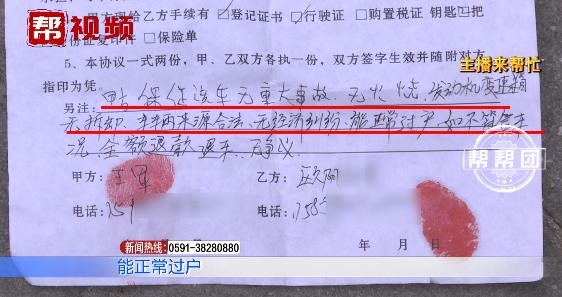 帮视频
主播来帮忙
给乙方手续有 ☑登记证书 ☑行驶证 □购置税证 钥匙☑把
□保险单
5、本协议一式两份，甲、乙双方各执一份，双方签字生效并随附对方
指印为凭。
另注： 甲方保证该车无重大事故、无火烧、发动机变速箱
无拆卸、车辆来源合法、无经济纠纷、能正常过户、如不符
况全额退款退车、无争议
帮帮团
甲方： 乙方：
电话：15 电话：1585
年 月 日
新闻热线: 0591-38280880
能正常过户